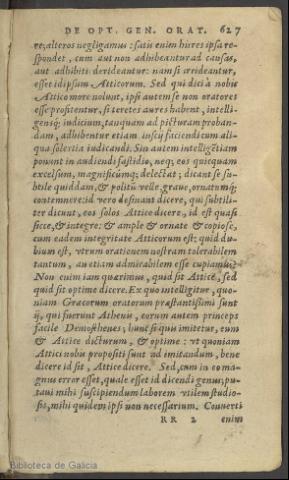 DE OPT. GEN. ORAT. 627
re, alteros negligamus: satis enim hi res ipsa re-
spondet, cum aut non adhibeantur ad causas,
aut adhibiti derideantur: nam si arrideantur,
esset id ipsum Atticorum. Sed qui dici à nobis
Attico more nolunt, ipsi autem se non oratores
esse profitentur, si teretes aures habent, intelli-
gensq́; iudicium, tanquam ad picturam proban-
dam, adhibentur etiam inscij faciendi cum ali-
qua solertia iudicandi. Sin autem intelligẽtiam
ponunt in audiendi fastidio, neq; eos quicquam
excelsum, magnificúmq; delectat; dicant se su-
btile quiddam, & politũ velle, graue, ornatumq́;
contemnere: id vero desinant dicere, qui subtili-
ter dicunt, eos solos Attice dicere, id est quasi
sicce, & integre: & ample & ornate & copiose,
cum eadem integritate Atticorum est: quid du-
bium est, vtrum orationem nostram tolerabilem
tantum, an etiam admirabilem esse cupiamus?
Non enim iam quærimus, quid sit Attice, sed
quid sit optime dicere. Ex quo intelligitur, quo-
niam Græcorum oratorum præstantißimi sunt
ij, qui fuerunt Athenis, eorum autem princeps
facile Demosthenes; hunc si quis imitetur, eum
& Attice dicturum, & optime: vt quoniam
Attici nobis propositi sunt ad imitandum, bene
dicere id sit, Attice dicere. Sed, cum in eo ma-
gnus error esset, quale esset id dicendi genus, pu-
taui mihi suscipiendum laborem vtilem studio-
sis, mihi quidem ipsi non necessarium. Conuerti
RR 2 enim
Biblioteca de Galicia